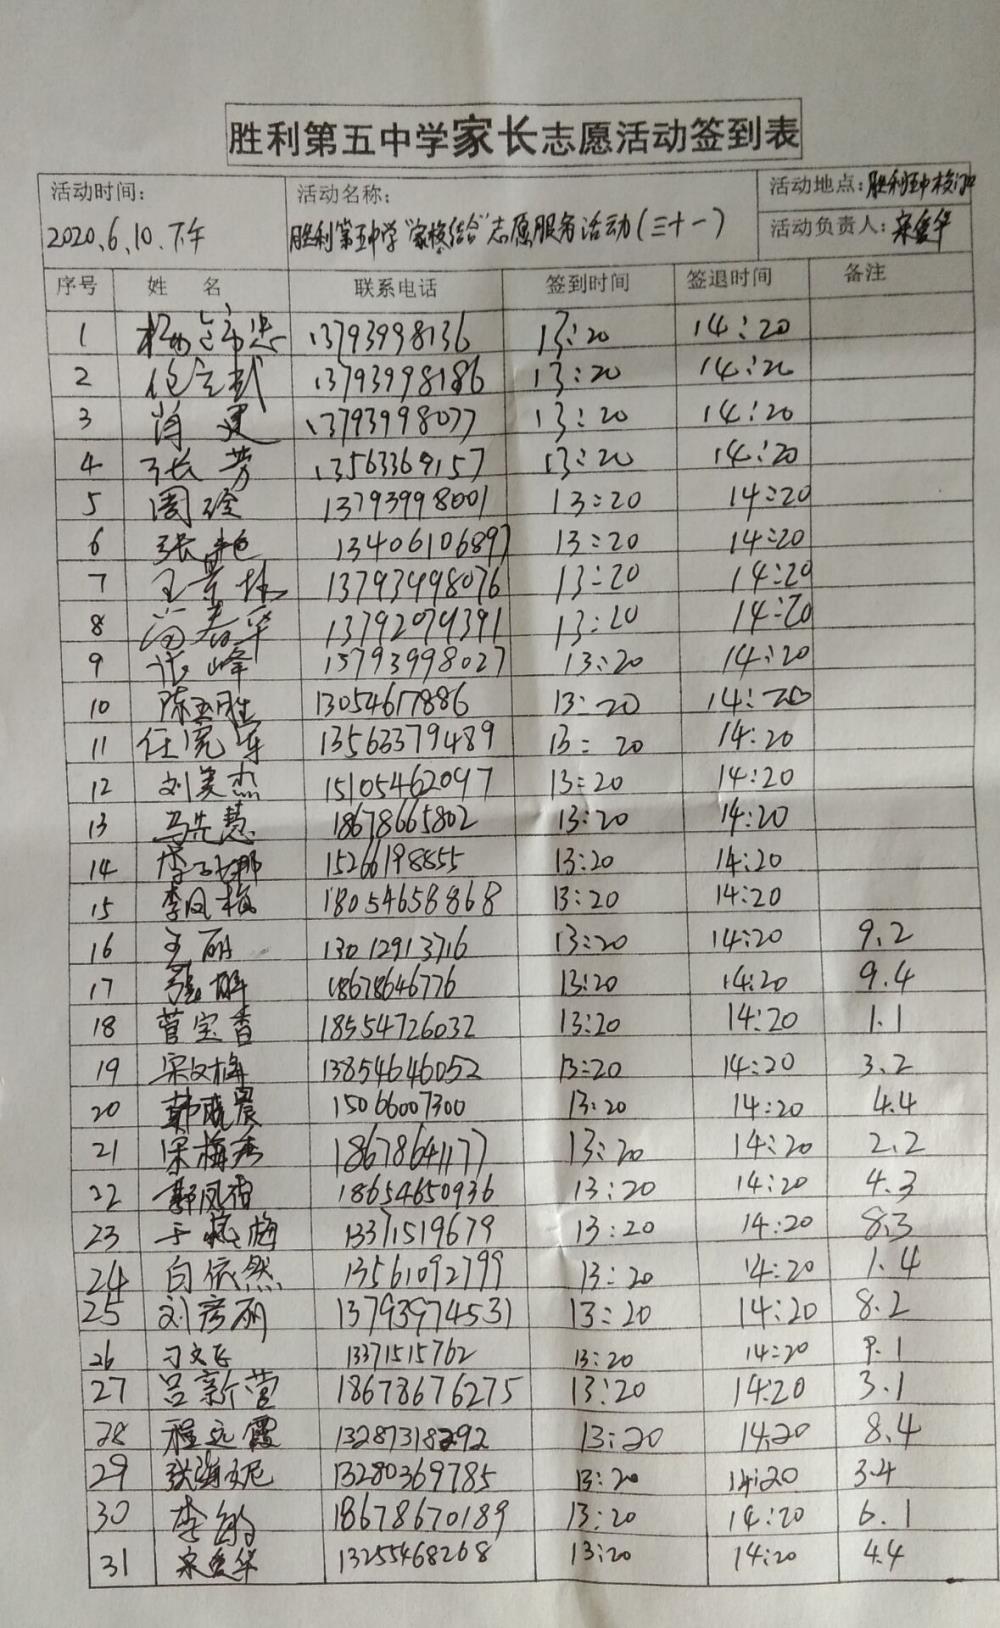 胜利第五中学家长志愿活动签到表
活动时间: 活动名称: 活动地点: 胜利五中校门口
2020.6.10.下午 胜利第五中学"家校结合"志愿服务活动(三十一) 活动负责人: 宋爱华
序号 姓 名 联系电话 签到时间 签退时间 备注
1 13793998136 13:20 14:20
2 13793998186 13:20 14:20
3 肖建 13793998077 13:20 14:20
4 张芳 13563369157 13:20 14:20
5 周玲 13793998001 13:20 14:20
6 张艳 13406106897 13:20 14:20
7 13793998076 13:20 14:20
8 春华 13792079391 13:20 14:20
9 张峰 15793998027 13:20 14:20
10 陈玉胜 13054617886 13:20 14:20
11 任晓军 13563379489 13:20 14:20
12 刘美杰 15105462097 13:20 14:20
13 马先慧 18678665802 13:20 14:20
14 李 娜 15266198855 13:20 14:20
15 李凤梅 18054658868 13:20 14:20
16 王丽 13012913716 13:20 14:20 9.2
17 18678646776 13:20 14:20 9.4
18 菅宝香 18554726032 13:20 14:20 1.1
19 宋文梅 13854646052 13:20 14:20 3.2
20 韩晓晨 15066007300 13:20 14:20 4.4
21 宋梅秀 18678641177 13:20 14:20 2.2
22 郭凤香 18654650936 13:20 14:20 4.3
23 梅 13371519679 13:20 14:20 8.3
24 白依然 13561092799 13:20 14:20 1.4
25 刘彦丽 13793974531 13:20 14:20 8.2
26 刁文飞 13371515762 13:20 14:20 9.1
27 吕新营 18678676275 13:20 14:20 3.1
28 程远霞 13287318292 13:20 14:20 8.4
29 张海妮 13280369785 13:20 14:20 3.4
30 李韵 18678670189 13:20 14:20 6.1
31 宋爱华 13255468268 13:20 14:20 4.4